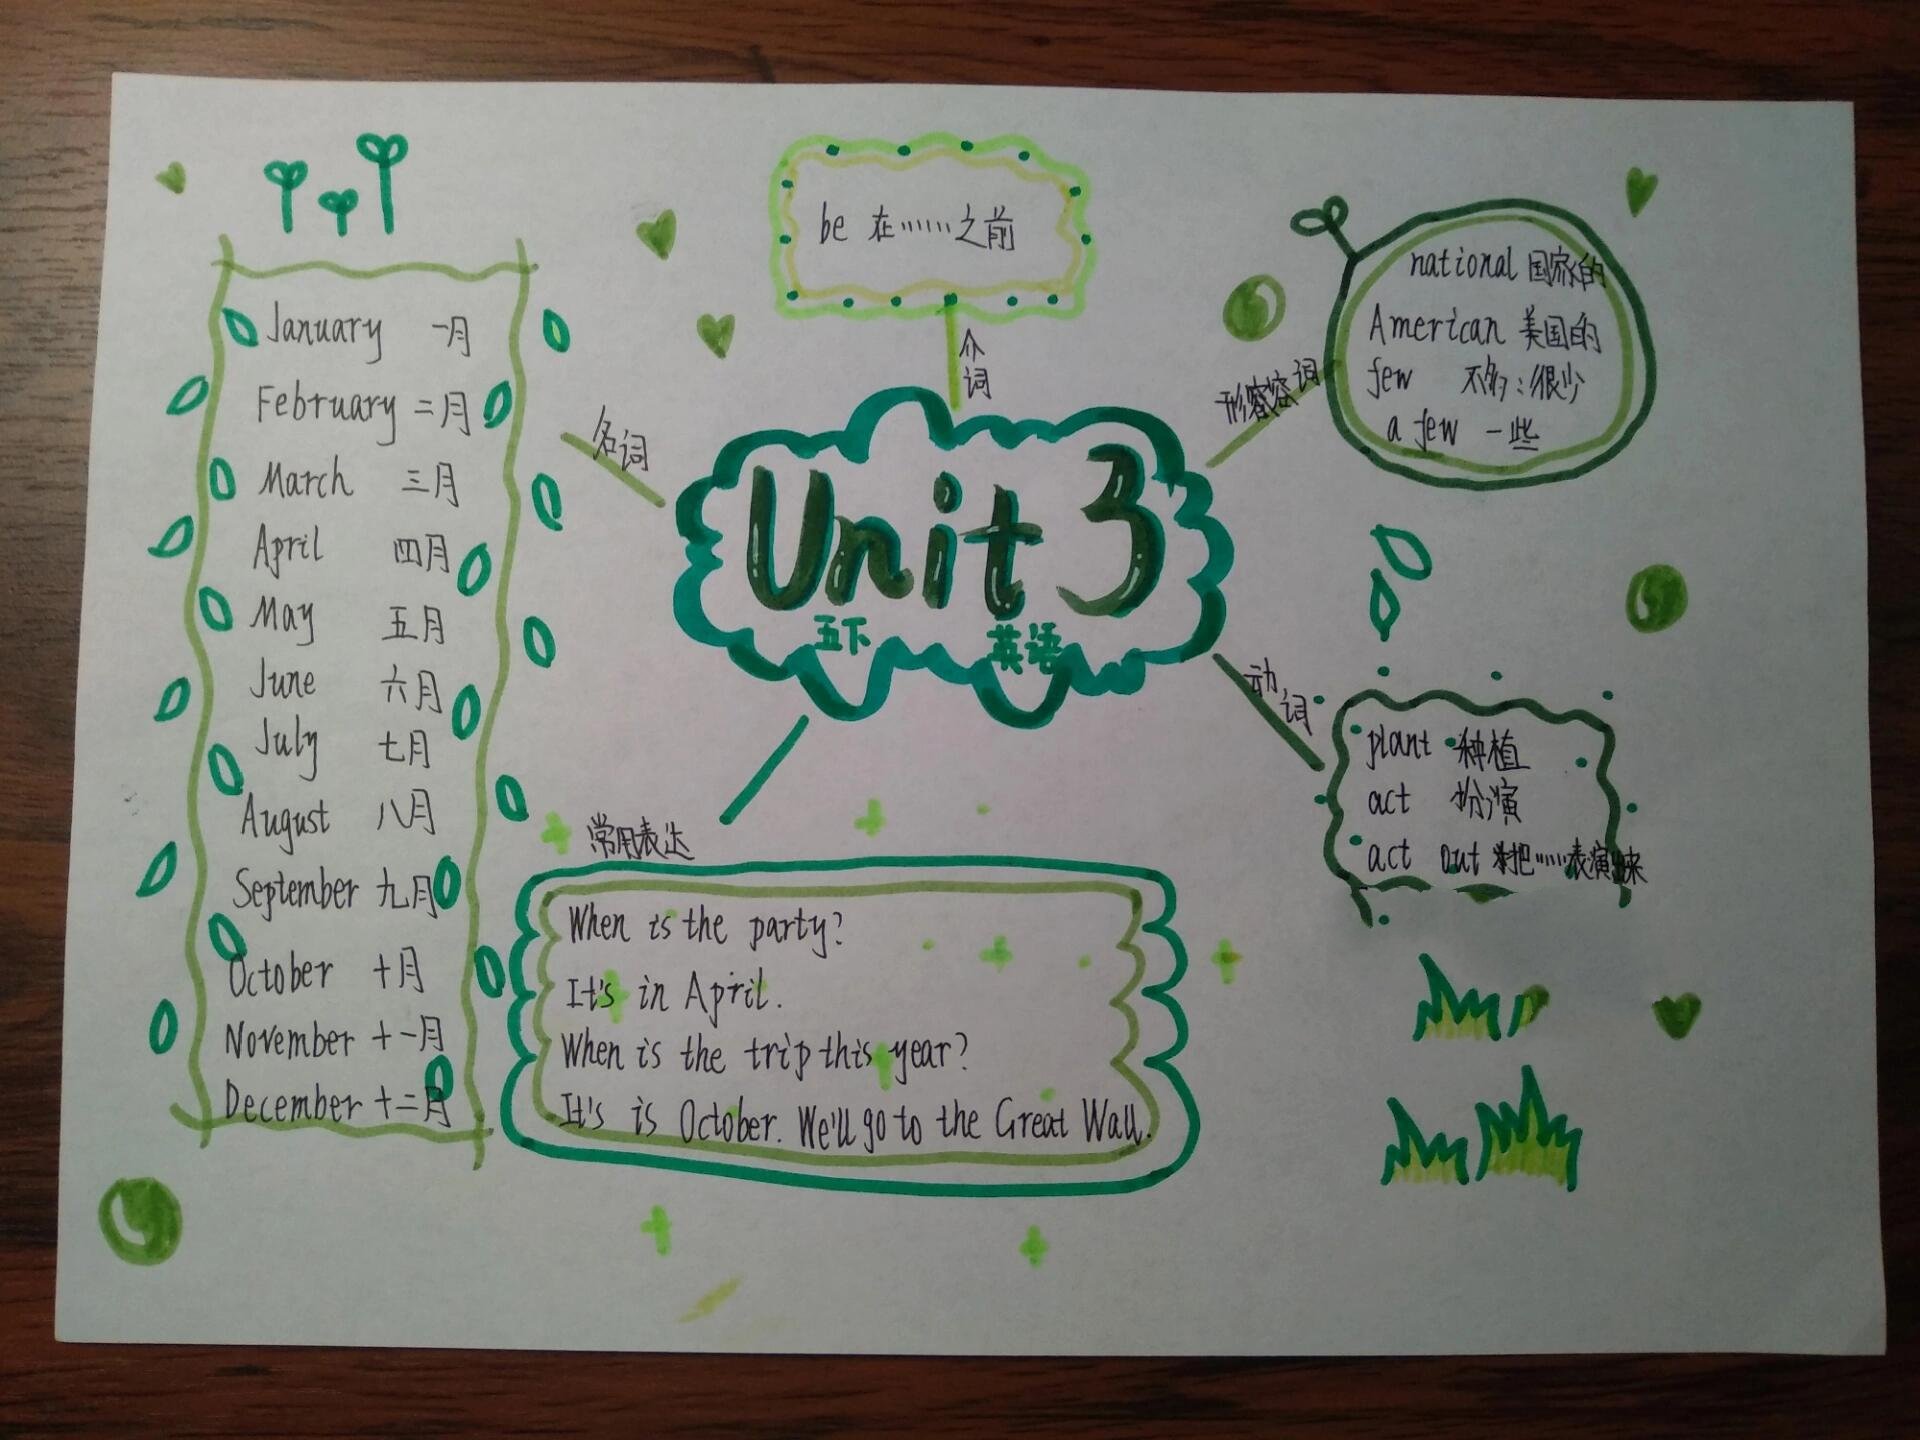 Unit 3
五下 英语
名词
January 一月
February 二月
March 三月
April 四月
May 五月
June 六月
July 七月
August 八月
September 九月
October 十月
November 十一月
December 十二月
介词
be 在……之前
形容词
national 国家的
American 美国的
few 不多;很少
a few 一些
动词
plant 种植
act 扮演
act out 把……表演出来
常用表达
When is the party?
It's in April.
When is the trip this year?
It's is October. We'll go to the Great Wall.